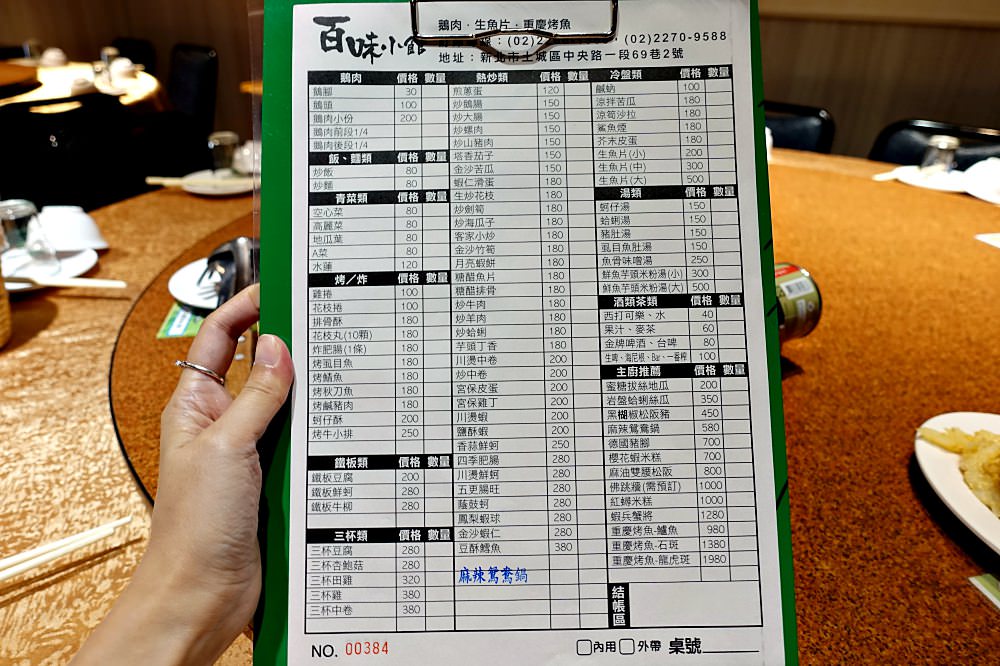 百味小館
鵝肉．生魚片．重慶烤魚
(02)2270-9588
地址：新北市土城區中央路一段69巷2號
鵝肉 價格 數量
鵝腳 30
鵝頭 100
鵝肉小份 200
鵝肉前段1/4
鵝肉後段1/4
飯、麵類 價格 數量
炒飯 80
炒麵 80
青菜類 價格 數量
空心菜 80
高麗菜 80
地瓜葉 80
A菜 80
水蓮 120
烤／炸 價格 數量
雞捲 100
花枝捲 100
排骨酥 180
花枝丸(10顆) 180
炸肥腸(1條) 180
烤虱目魚 180
烤鯖魚 180
烤秋刀魚 180
烤鹹豬肉 180
蚵仔酥 200
烤牛小排 250
鐵板類 價格 數量
鐵板豆腐 200
鐵板鮮蚵 280
鐵板牛柳 280
三杯類 價格 數量
三杯豆腐 280
三杯杏鮑菇 280
三杯田雞 320
三杯雞 380
三杯中卷 380
熱炒類 價格 數量
煎蔥蛋 120
炒鵝腸 150
炒大腸 150
炒螺肉 150
炒山豬肉 150
塔香茄子 150
金沙苦瓜 150
蝦仁滑蛋 180
生炒花枝 180
炒劍筍 180
炒海瓜子 180
客家小炒 180
金沙竹筍 180
月亮蝦餅 180
糖醋魚片 180
糖醋排骨 180
炒牛肉 180
炒羊肉 180
炒蛤蜊 180
芋頭丁香 180
川燙中卷 200
炒中卷 200
宮保皮蛋 200
宮保雞丁 200
川燙蝦 200
鹽酥蝦 200
香蒜鮮蚵 250
四季肥腸 280
川燙鮮蚵 280
五更腸旺 280
蔭鼓蚵 280
鳳梨蝦球 280
金沙蝦仁 280
豆酥鱈魚 380
麻辣鴛鴦鍋
冷盤類 價格 數量
鹹蜆 100
涼拌苦瓜 180
涼筍沙拉 180
鯊魚煙 180
芥末皮蛋 180
生魚片(小) 200
生魚片(中) 300
生魚片(大) 500
湯類 價格 數量
蚵仔湯 150
蛤蜊湯 150
豬肚湯 150
虱目魚肚湯 150
魚骨味噌湯 250
鮮魚芋頭米粉湯(小) 300
鮮魚芋頭米粉湯(大) 500
酒類茶類 價格 數量
西打可樂、水 40
果汁、麥茶 60
金牌啤酒、台啤 80
生啤、海尼根、Bar、一番榨 100
主廚推薦 價格 數量
蜜糖拔絲地瓜 200
岩盤蛤蜊絲瓜 350
黑椒松阪豬 450
麻辣鴛鴦鍋 580
德國豬腳 700
櫻花蝦米糕 700
麻油雙腰松阪 800
佛跳牆(需預訂) 1000
紅蟳米糕 1000
蝦兵蟹將 1280
重慶烤魚-鱸魚 980
重慶烤魚-石斑 1380
重慶烤魚-龍虎斑 1980
結帳區
NO. 00384
內用 外帶 桌號